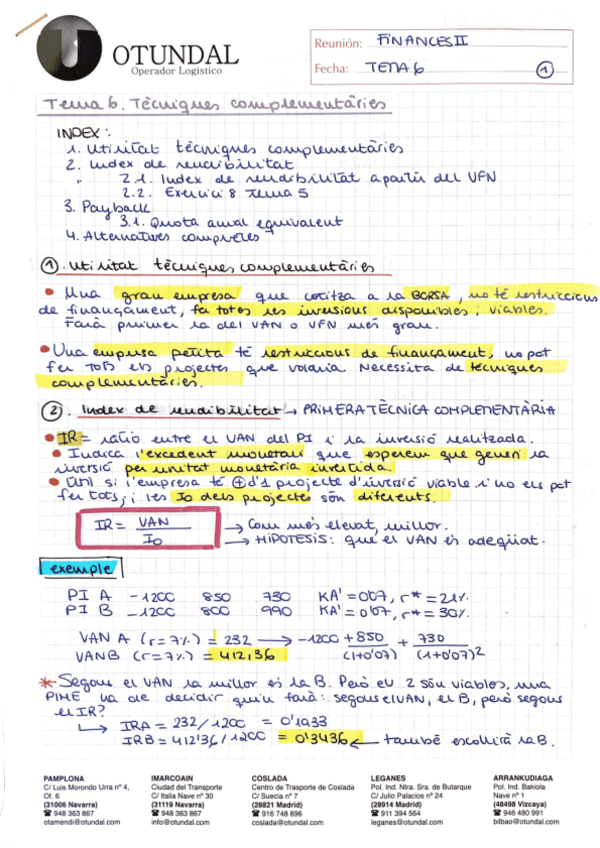 OTUNDAL
Operador Logístico
Reunión: FINANCES II
Fecha: TEMA 6
1
Tema 6. Tècniques complementàries
INDEX:
1. Utilitat tècniques complementàries
2. Index de rendibilitat
2.1. Index de rendibilitat a partir del VFN
2.2. Exercici 8 Tema 5
3. Payback
3.1. Quota anual equivalent
4. Alternatives completes
1. Utilitat tècniques complementàries
• Una gran empresa que cotitza a la BORSA, no té restriccions
de finançament, fa totes les inversions disponibles i viables.
Farà primer la del VAN o VFN més gran.
• Una empresa petita té restriccions de finançament, no pot
fer tots els projectes que voldria. Necessita de tècniques
complementàries.
2. Index de rendibilitat → PRIMERA TÈCNICA COMPLEMENTÀRIA
• IR = ratio entre el VAN del PI i la inversió realitzada.
• Indica l'excedent monetari que esperem que generi la
inversió per unitat monetària invertida.
• Útil si l'empresa té + d'1 projecte d'inversió viable i no els pot
fer tots; i les Io dels projectes són diferents.
IR = VAN / Io → Com més elevat, millor.
→ HIPOTESIS: que el VAN és adequat.
exemple
PI A -1200 850 730 KA' = 0'07, r* = 21%
PI B -1200 800 990 KA' = 0'07, r* = 30%
VAN A (r=7%) = 232 → -1200 + 850/(1+0'07) + 730/(1+0'07)²
VAN B (r=7%) = 412,36
* Segons el VAN la millor és la B. Però els 2 són viables, una
PIME ha de decidir quin farà: segons el VAN, el B, però segons
el IR?
→ IRA = 232/1200 = 0'1933
IRB = 412'36/1200 = 0'3436 ← també escollirà la B.
PAMPLONA
C/ Luis Morondo Urra nº 4,
Of. 6
(31006 Navarra)
☎ 948 363 867
otamendi@otundal.com
IMARCOAIN
Ciudad del Transporte
C/ Italia Nave nº 30
(31119 Navarra)
☎ 948 363 867
info@otundal.com
COSLADA
Centro de Trasporte de Coslada
C/ Suecia nº 7
(28821 Madrid)
☎ 916 748 896
coslada@otundal.com
LEGANES
Pol. Ind. Ntra. Sra. de Butarque
C/ Julio Palacios nº 24
(28914 Madrid)
☎ 911 394 564
leganes@otundal.com
ARRANKUDIAGA
Pol. Ind. Bakiola
Nave nº 1
(48498 Vizcaya)
☎ 946 480 991
bilbao@otundal.com